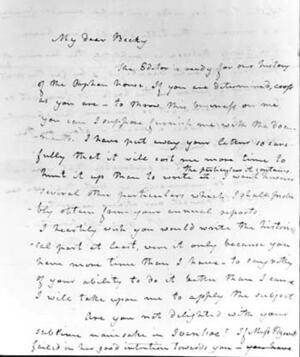 My dear Becky
The Editor is ready for our history
of the Orphan house. If you are determined,
as you are to throw this business on me
you can I suppose furnish me with the docu-
ments. I have put away your letters so care-
fully that it will cost me more time to
hunt it up than to write the particulars it contains.
several other particulars which I shall proba-
bly obtain from your annual reports
I heartily wish you would write the histori-
cal part at least, were it only because you
have more time than I have - to say nothing
of your ability to do it better than I can
I will take upon me to apply the subject
Are you not delighted with your
sublime namesake in Ivanhoe! If Miss
failed in her good intention towards you - you have